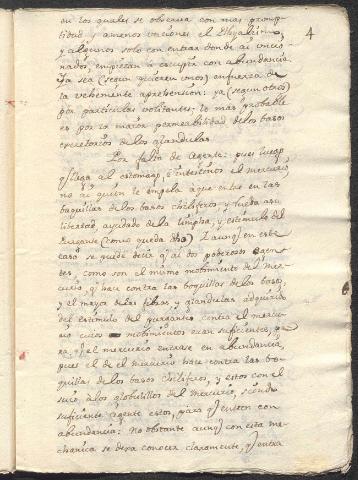 4
en los quales se observa con mas promp-
titud y amenos unciones el Phyalismo,
y algunos solo con entrar donde ai uncio-
nados, empiezan a escupir con abundancia
Ya sea (segun quieren unos) en fuerza de
la vehemente aprehension: ya (segun otros)
por particulas volitantes: lo mas probable
es por la maior permeabilidad de los basos
excretorios de las glandulas.
Por falta de agente: pues luego
q llega al estomago, è intestinos el mercurio,
no ai quien le impela aque entre en las
boquillas de los basos chiliferos y suba asu
libertad, ayudado de la limpha, y estimulo del
Purgante (como queda dho) Y aunq en este
caso se puede decir q ai dos poderosos agen-
tes, como son el mismo mobimiento del mer-
curio, q hace contra las boquillas de los basos,
y el mayor de las fibras, y glandulas adquirido
del estimulo del purgante contra el mercu-
rio cuios mobimientos eran suficientes, pa-
ra, q el mercurio entrase en abundancia,
pues el de el mercurio hace contra las bo-
quillas de los basos chiliferos, y estos con el
suio, a los globulillos del mercurio, siendo
suficiente agente estos, para q entren con
abundancia: No obstante aunq con esta me-
chanica se dexa conocer claramente, q entra